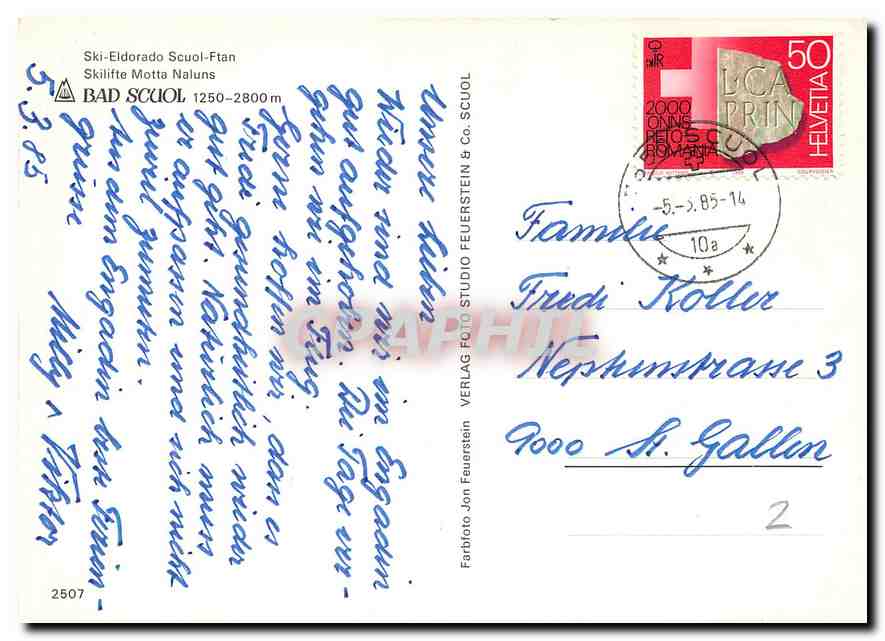 Ski-Eldorado Scuol-Ftan
Skilifte Motta Naluns
BAD SCUOL 1250-2800 m
5.3.85
Unsere Lieben
Wieder sind wir im Engadin
gut aufgehoben. Die Tage ver-
gehen wie im Flug.
Gerne hoffen wir, dass es
Fredi gesundheitlich wieder
gut geht. Natürlich muss
er aufpassen und sich nicht
zuviel zumuten.
Aus dem Engadin beste Ferien-
grüsse
Milly & Viktor
2507
Farbfoto Jon Feuerstein VERLAG FOTO STUDIO FEUERSTEIN & Co. SCUOL
50
HELVETIA
L·CA
PRIN
2000
ONNS
RETO
ROMANIA
COURVOISIER
SCUOL
-5.-3.85-14
10a
Familie
Fredi Koller
Neptunstrasse 3
9000 St. Gallen
2
CPAPHIL